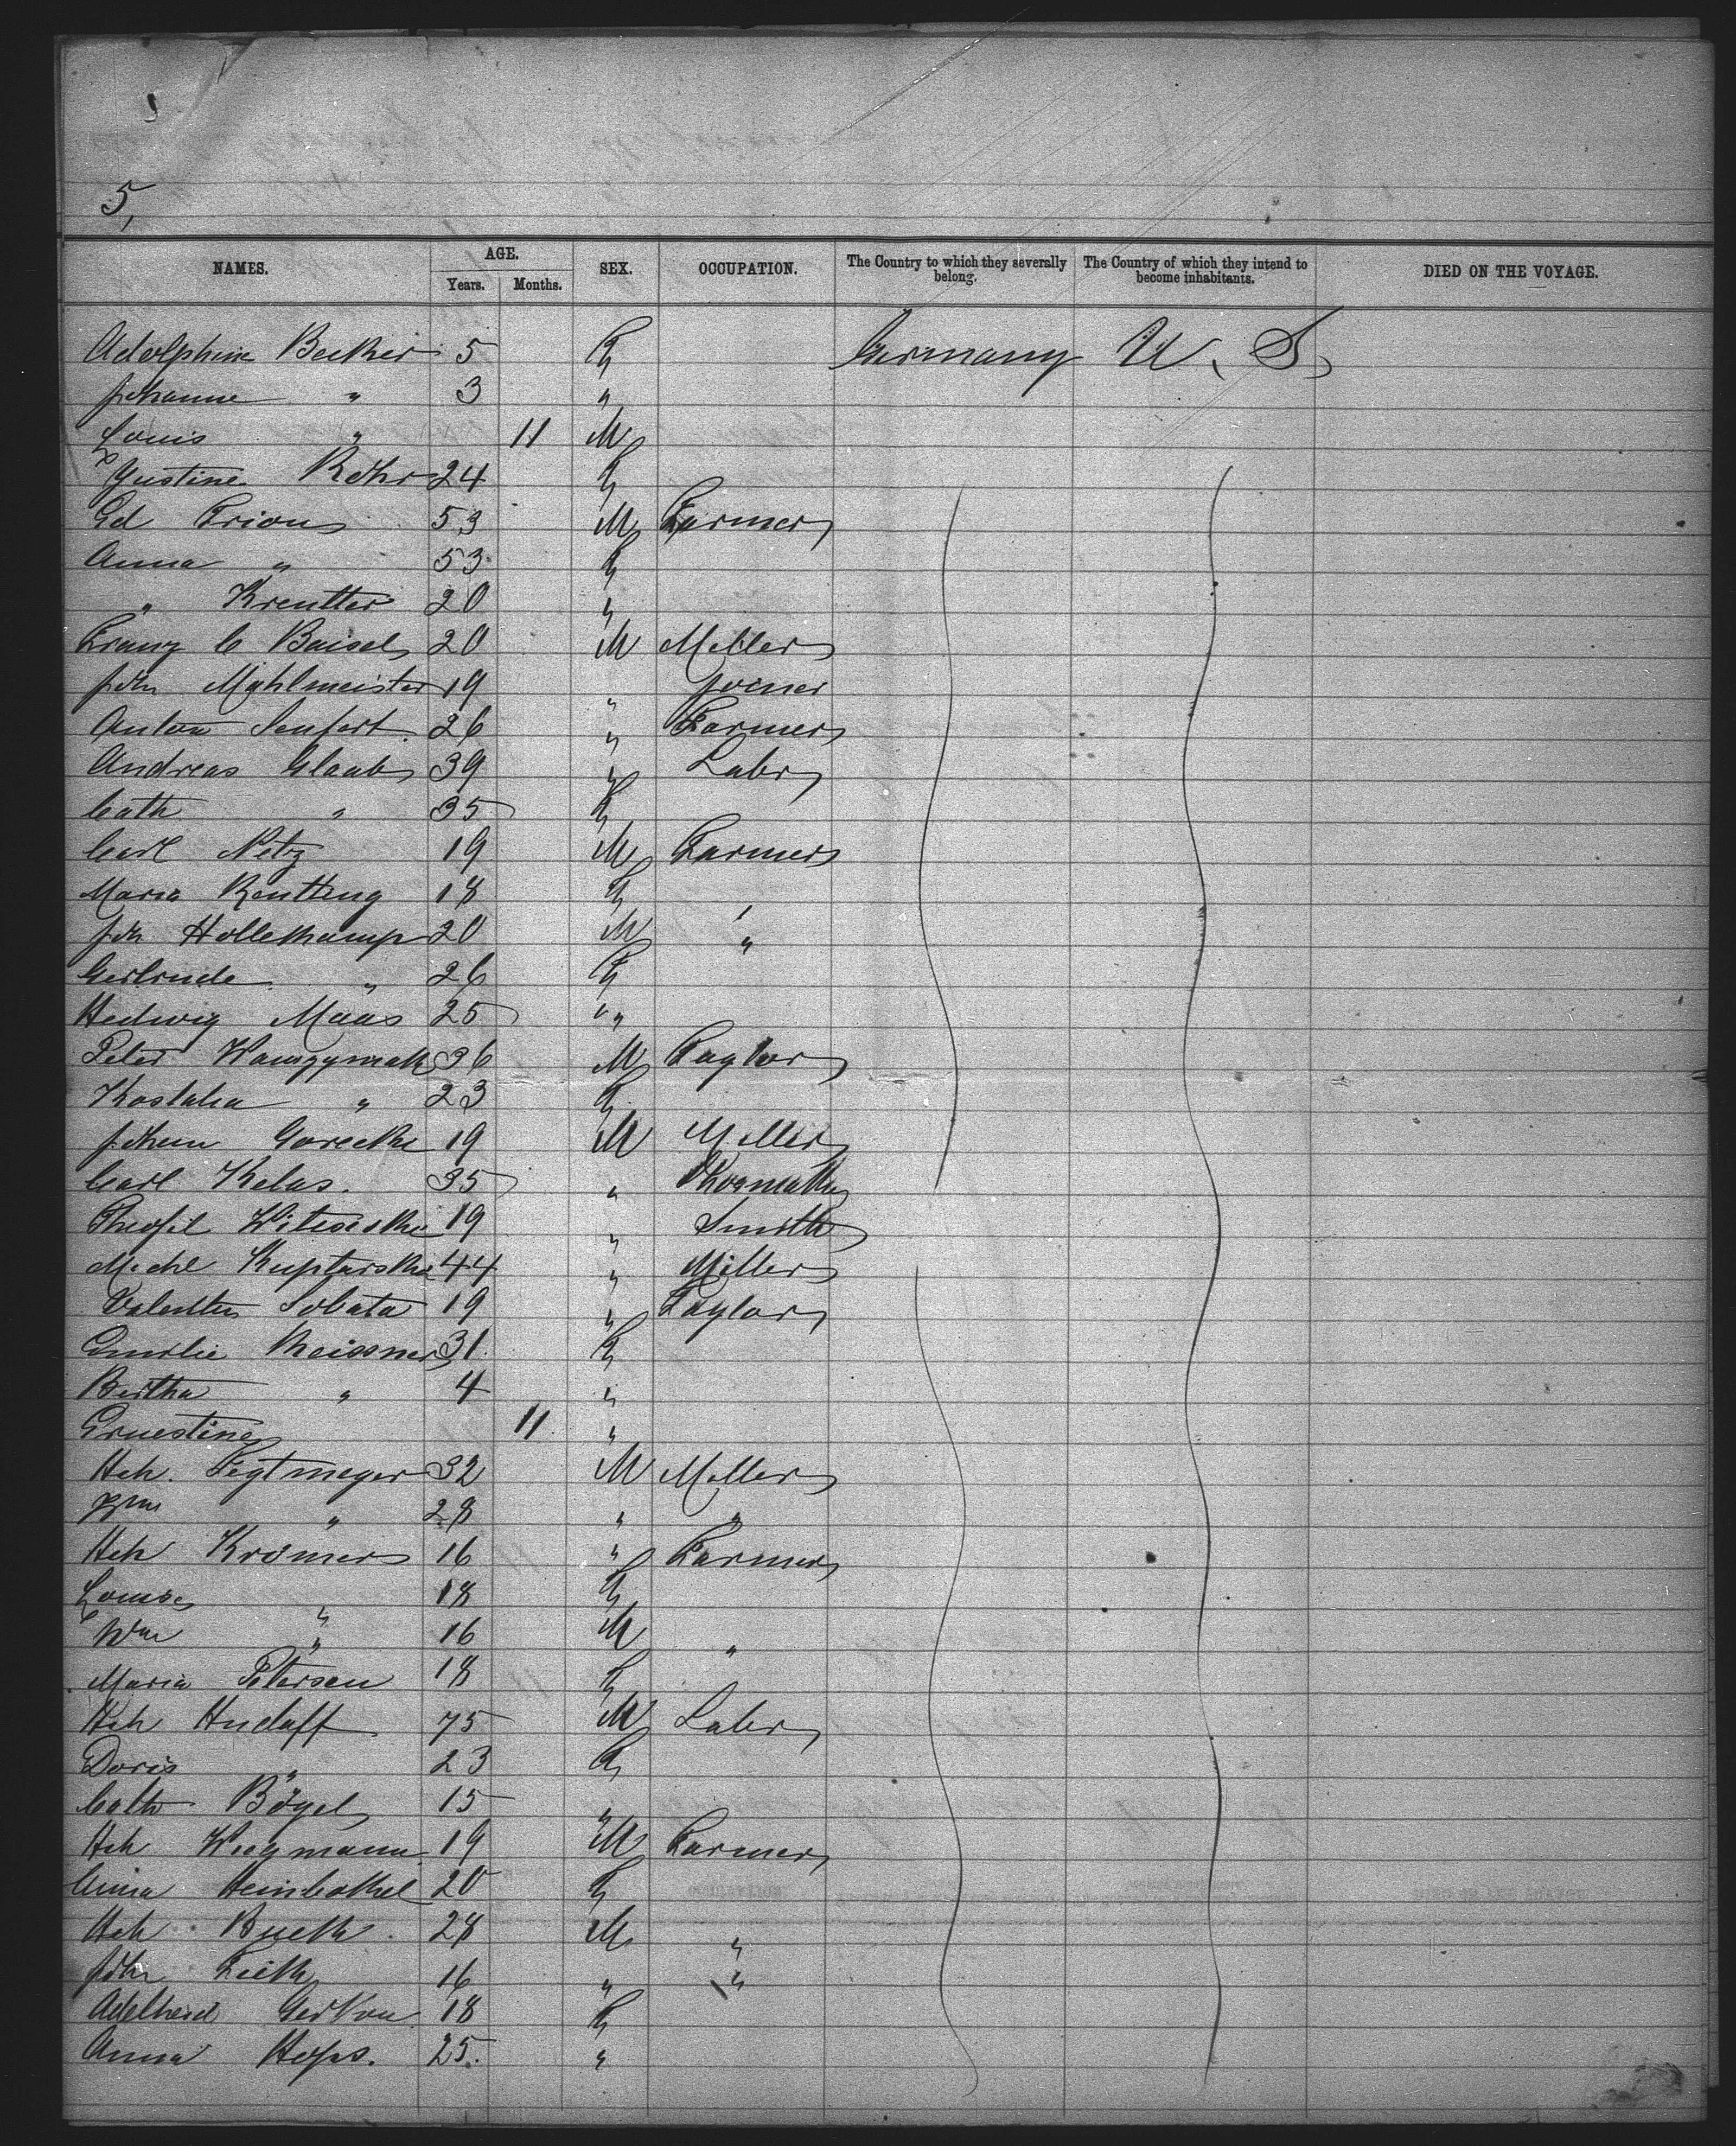 5,
NAMES. AGE. SEX. OCCUPATION. The Country to which they severally belong. The Country of which they intend to become inhabitants. DIED ON THE VOYAGE.
Years. Months.
Adolphine Becker 5 F Germany U. S.
Johanne " 3 "
Louis " 11 M
Justine Rohr 24 F
Ed Frion 53 M Farmer
Anna " 53 F
" Kreutter 20 "
Franz C Baisel 20 M Miller
Joh Mahlmeister 19 " Joiner
Anton Seufert 26 " Farmer
Andreas Glaab 39 " Labr
Cath " 35 F
Carl Netz 19 M Farmer
Maria Rentting 18 F
Joh Hollekamp 20 M "
Gertrude " 26 F
Hedwig Maas 25 "
Peter 36 M Taylor
" 23 F
Johan Gorecki 19 M Miller
Carl Kelas. 35 "
Theofil 19 " Smith
Michl Kuptarski 44 " Miller
Valentin Sobata 19 " Taylor
Emilie Meissner 31 F
Bertha " 4 "
Ernestine 11 "
Hch. Fegtmeyer 32 M Miller
Wm " 28 " "
Hch Kromer 16 " Farmer
Louise " 18 F
Wm " 16 M "
Maria Petersen 18 F
Hch Hudaff 75 M Labr
Doris " 23 F
Cath Bögel 15 "
Hch Wiegmann 19 M Farmer
Anna Heinbokel 20 F
Hch Bueck 28 M "
Joh Fick 16 " "
Adelheid Gerken 18 F
Anna Hops. 25 "